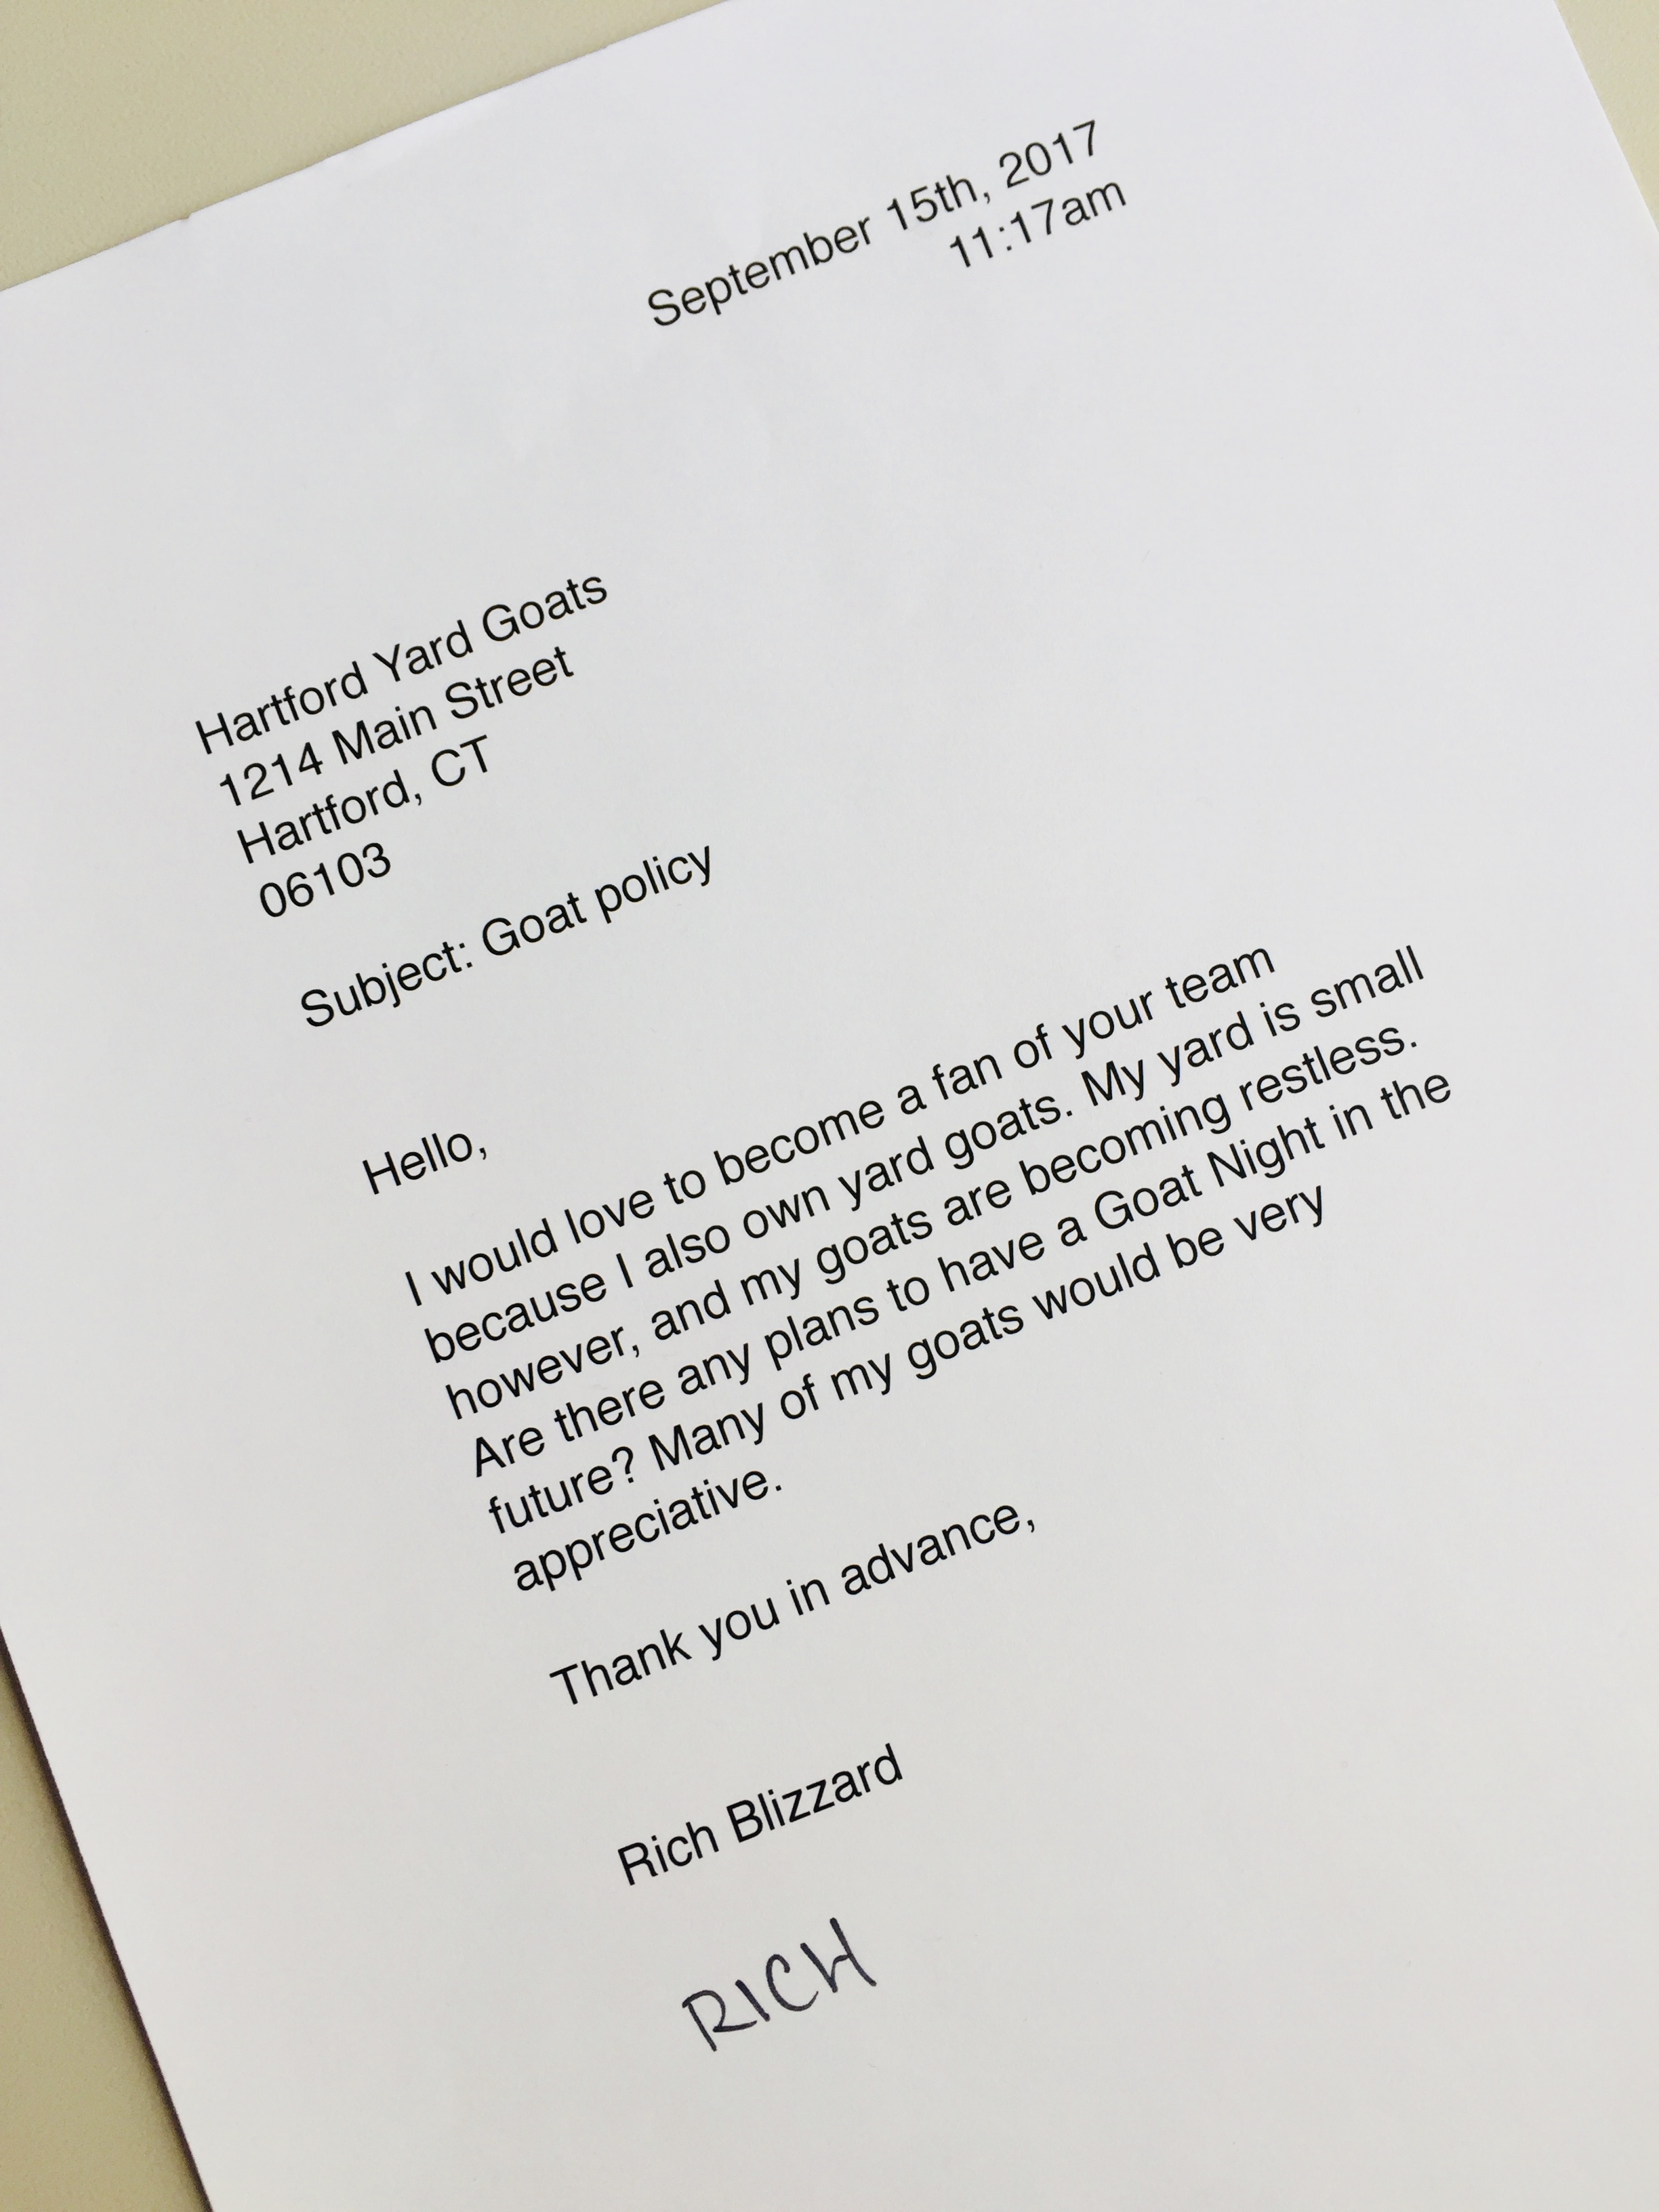 September 15th, 2017
11:17am
Hartford Yard Goats
1214 Main Street
Hartford, CT
06103
Subject: Goat policy
Hello,
I would love to become a fan of your team
because I also own yard goats. My yard is small
however, and my goats are becoming restless.
Are there any plans to have a Goat Night in the
future? Many of my goats would be very
appreciative.
Thank you in advance,
Rich Blizzard
RICH